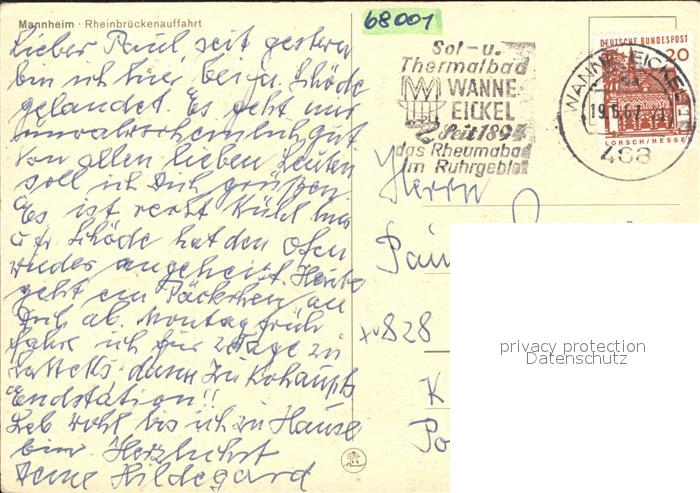 Mannheim · Rheinbrückenauffahrt
Lieber Paul seit gestern
bin ich hier bei fr. Schöde
gelandet. Es geht mir
unwahrscheinlich gut
Von allen lieben Leuten
soll ich Dich grüßen
Es ist recht kühl hier
u fr. Schöde hat den Ofen
wieder angeheizt. Heute
geht ein Päckchen an
Dich ab. Montag früh
fahre ich für 2 Tage zu
dann zu
Endstation!!
Leb wohl bis ich zu Hause
bin. Herzlichst
Deine Hildegard
68001
Sol- u.
Thermalbad
WANNE-
EICKEL
Seit 1894
das Rheumabad
im Ruhrgebiet
DEUTSCHE BUNDESPOST
20
LORSCH/HESSEN
WANNE-EICKEL
19.5.67
468
Herrn
828
K
Po
privacy protection
Datenschutz